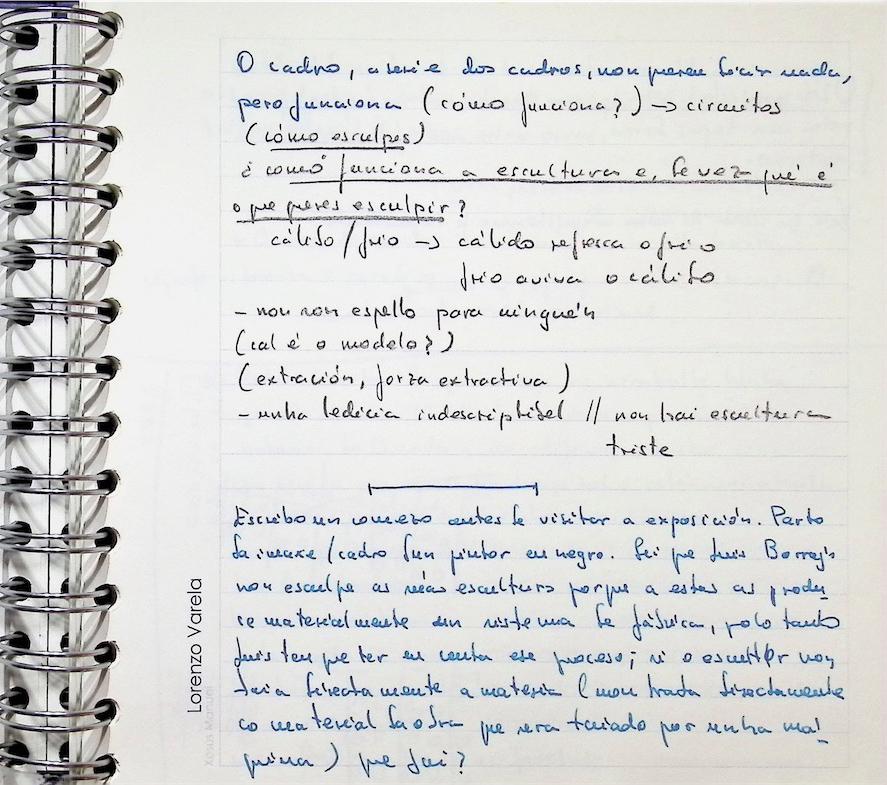 O cadro, a serie dos cadros, non queren dicir nada,
pero funciona (cómo funciona?) → circuitos
(cómo esculpes)
¿ como funciona a escultura e, de vez qué é
o que queres esculpir?
cálido/frio → cálido refresca o frio
frio aviva o cálido
- non son espello para ninguén
(cal é o modelo?)
(extración, forza extractiva)
- unha ledicia indescriptibel // non hai escultura
triste
Escribo un comezo antes de visitar a exposición. Parto
da imaxe/cadro dun pintor en negro. Sei que Luis Borrajo
non esculpe as súas esculturas porque a estas as produ
ce materialmente un sistema de fábrica, polo tanto
Luis ten que ter en conta ese proceso; si o escultor non
talla directamente a materia (non trata directamente
co material da obra que sera tallado por unha má
quina) que fai?
Lorenzo Varela
Xosé Manuel